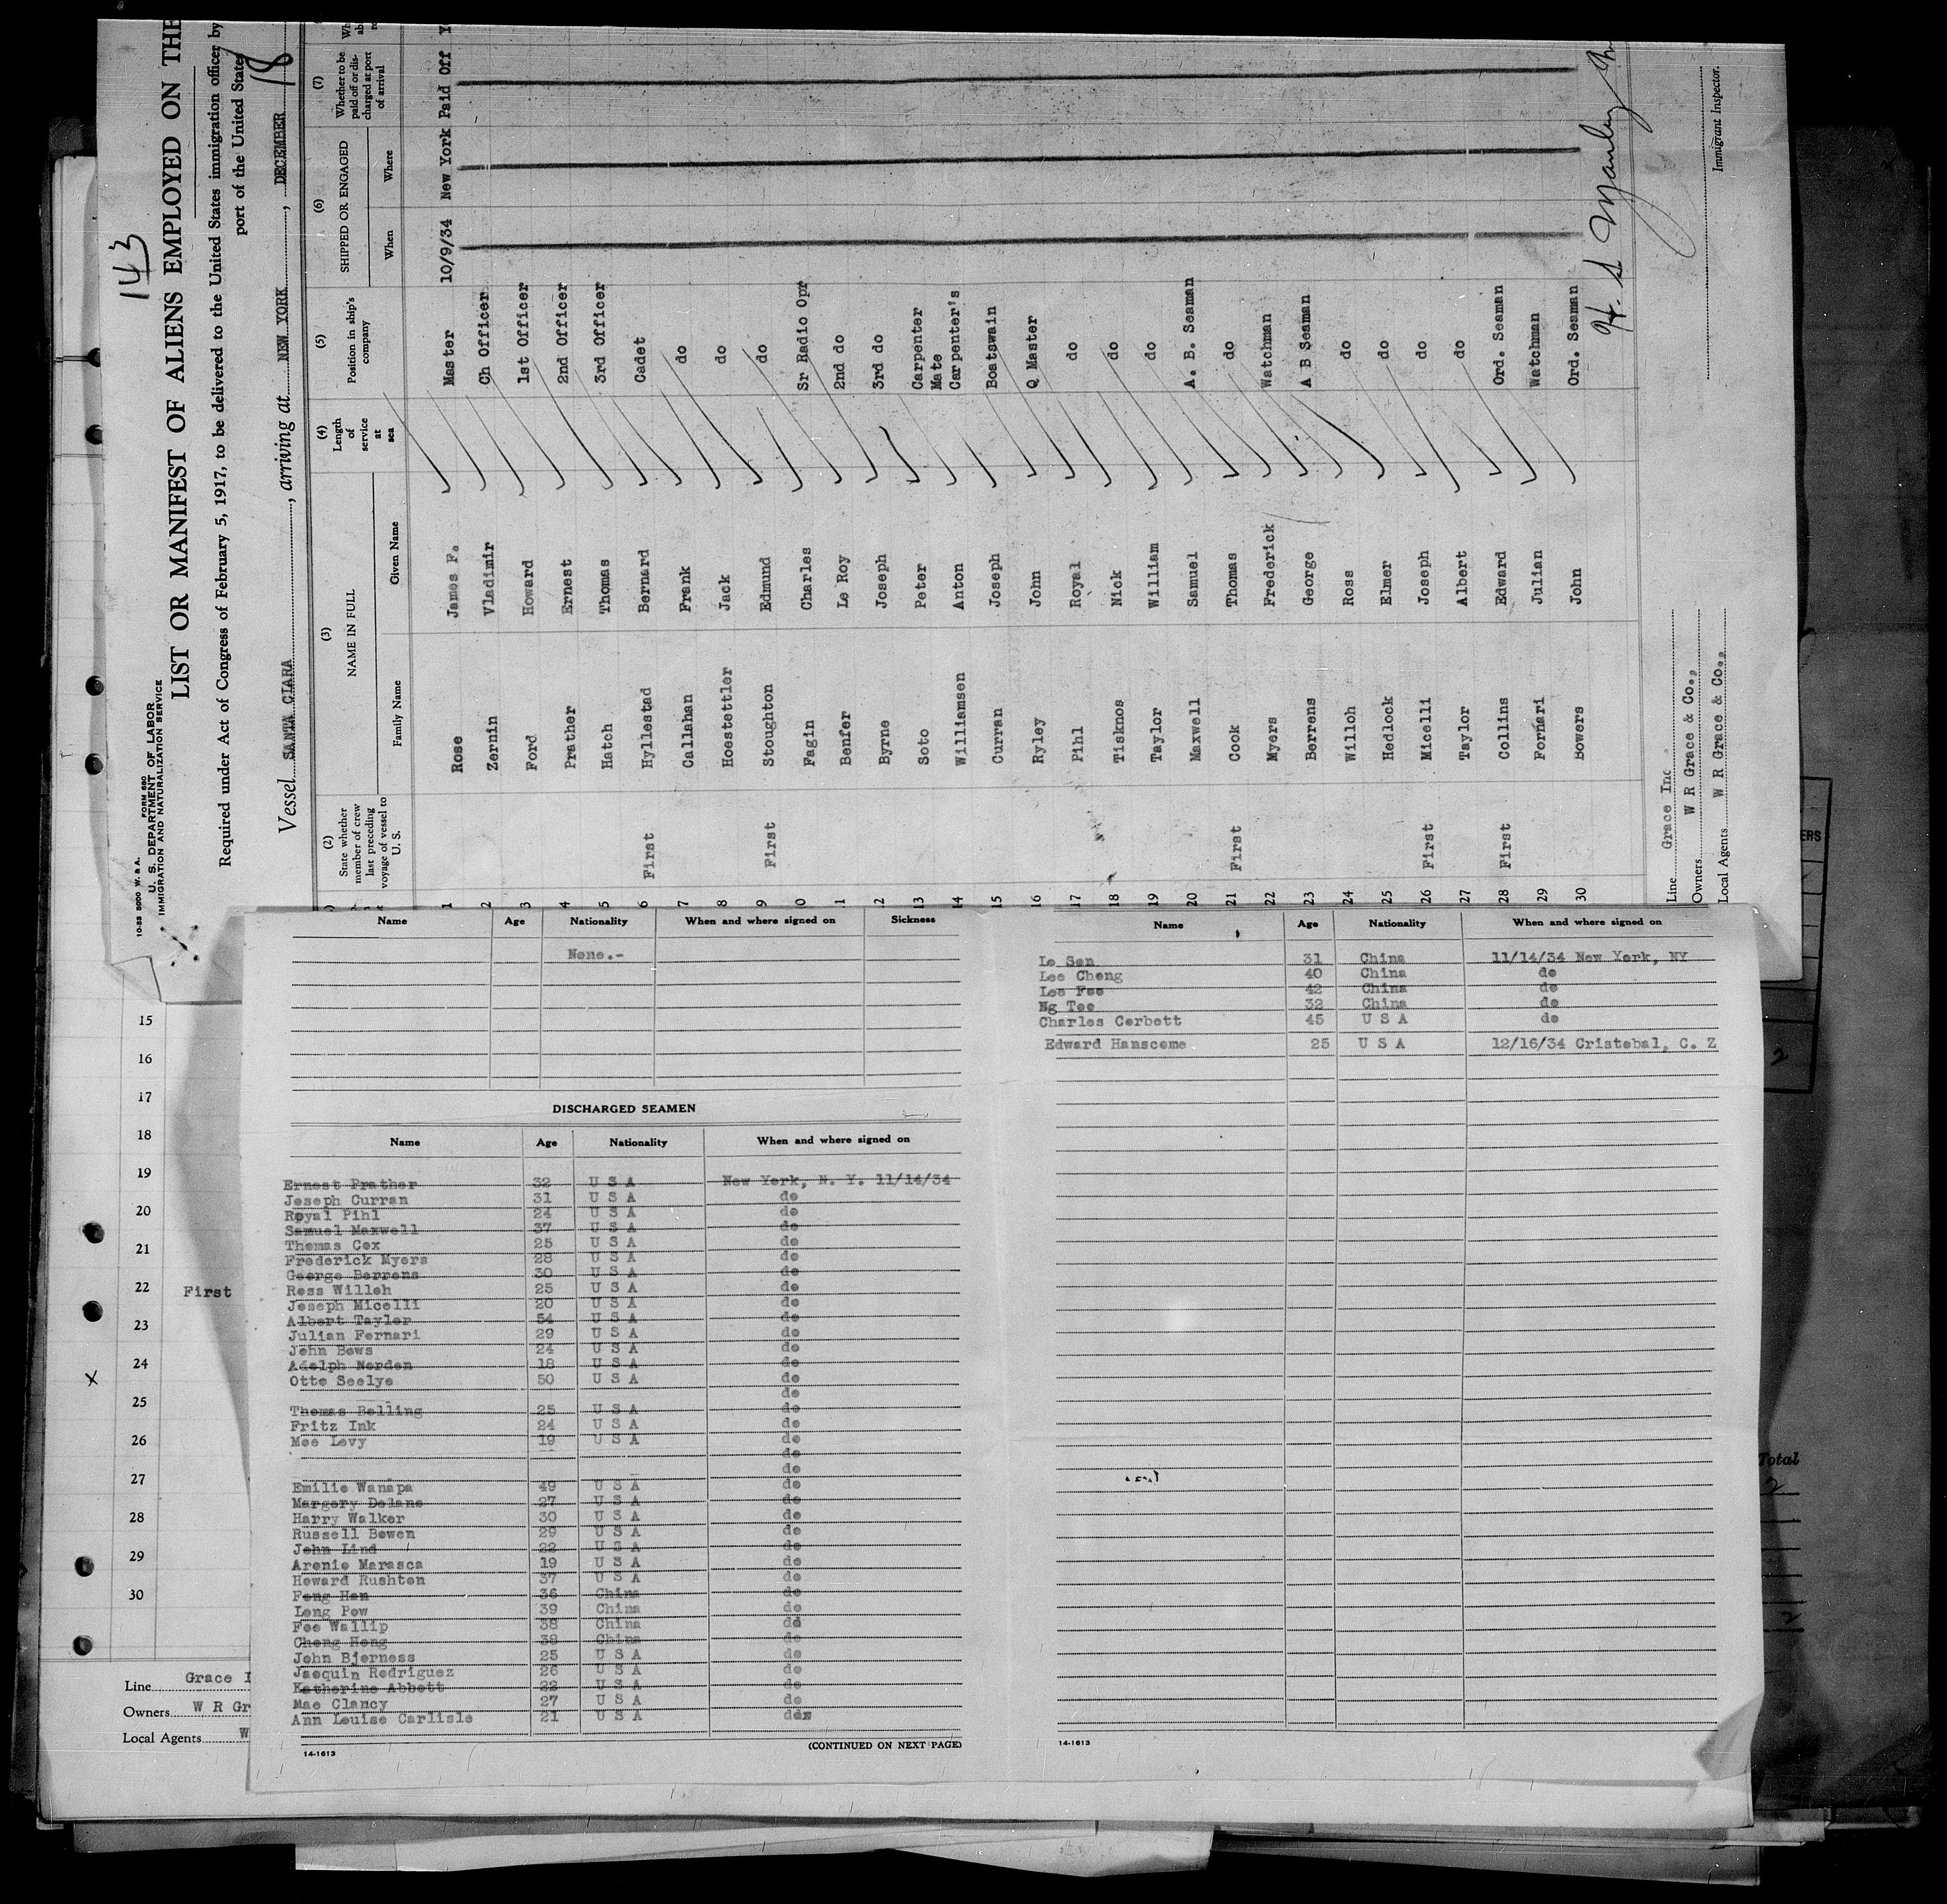 143
FORM 680
U. S. DEPARTMENT OF LABOR
IMMIGRATION AND NATURALIZATION SERVICE
10-33 5000 W. & A.
LIST OR MANIFEST OF ALIENS EMPLOYED ON THE
Required under Act of Congress of February 5, 1917, to be delivered to the United States immigration officer by
port of the United States
Vessel SANTA CLARA, arriving at NEW YORK, DECEMBER 18
(2) State whether member of crew last preceding voyage of vessel to U. S.
(3) NAME IN FULL Family Name Given Name
(4) Length of service at sea
(5) Position in ship's company
(6) SHIPPED OR ENGAGED When Where
(7) Whether to be paid off or discharged at port of arrival
1 Rose James F. Master 10/9/34 New York Paid Off
2 Zernin Vladimir Ch Officer
3 Ford Howard 1st Officer
4 Prather Ernest 2nd Officer
5 Hatch Thomas 3rd Officer
6 First Hyllestad Bernard Cadet
7 Callahan Frank do
8 Hoestettler Jack do
9 First Stoughton Edmund do
0 Fagin Charles Sr Radio Opr
1 Benfer Le Roy 2nd do
2 Byrne Joseph 3rd do
13 Soto Peter Carpenter
14 Williamsen Anton Mate Carpenter's
15 Curran Joseph Boatswain
16 Ryley John Q Master
17 Pihl Royal do
18 Tisknos Nick do
19 Taylor William do
20 Maxwell Samuel A. B. Seaman
21 First Cook Thomas do
22 Myers Frederick Watchman
23 Berrens George A B Seaman
24 Willoh Ross do
25 Hedlock Elmer do
26 First Micelli Joseph do
27 Taylor Albert do
28 First Collins Edward Ord. Seaman
29 Fornari Julian Watchman
30 Bowers John Ord. Seaman
Line Grace Inc.
Owners W R Grace & Co.,
Local Agents W R Grace & Co.,
Immigrant Inspector.
Name Age Nationality When and where signed on Sickness
None.-
DISCHARGED SEAMEN
Name Age Nationality When and where signed on
Ernest Prather 32 U S A New York, N. Y. 11/14/34
Joseph Curran 31 U S A do
Royal Pihl 24 U S A do
Samuel Maxwell 37 U S A do
Thomas Cox 25 U S A do
Frederick Myers 28 U S A do
George Berrens 30 U S A do
Ross Willoh 25 U S A do
Joseph Micelli 20 U S A do
Albert Taylor 54 U S A do
Julian Fornari 29 U S A do
John Bows 24 U S A do
Adolph Norden 18 U S A do
Otto Seelye 50 U S A do
do
Thomas Bolling 25 U S A do
Fritz Ink 24 U S A do
Moe Levy 19 U S A do
do
do
Emilie Wanapa 49 U S A do
Margery Delano 27 U S A do
Harry Walker 30 U S A do
Russell Bowen 29 U S A do
John Lind 22 U S A do
Arenio Marasca 19 U S A do
Howard Rushton 37 U S A do
Fong Han 36 China do
Long Pow 39 China do
Foo Wallip 38 China do
Chong Hong 38 China do
John Bjorness 25 U S A do
Jaoquin Rodriguez 26 U S A do
Katherine Abbott 22 U S A do
Mae Clancy 27 U S A do
Ann Louise Carlisle 21 U S A do
14-1613
(CONTINUED ON NEXT PAGE)
Name Age Nationality When and where signed on
Lo Sen 31 China 11/14/34 New York, NY
Lee Chong 40 China do
Lee Foo 42 China do
Ng Tee 32 China do
Charles Corbett 45 U S A do
Edward Hanscome 25 U S A 12/16/34 Cristobal, C. Z
14-1613
15
16
17
18
19
20
21
22 First
23
24
25
26
27
28
29
30
Line Grace I
Owners W R Gr
Local Agents W
ERS
2
Total
2
2